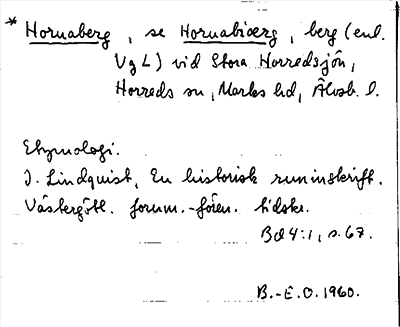 * Hornaberg, se Hornabiærg, berg (enl.
Vg L) vid Stora Horredsjön,
Horreds sn, Marks hd, Älvsb. l.
Etymologi.
I. Lindquist, En historisk runinskrift.
Västergötl. fornm.-fören. tidskr.
Bd 4:1, s. 67.
B.-E. O. 1960.